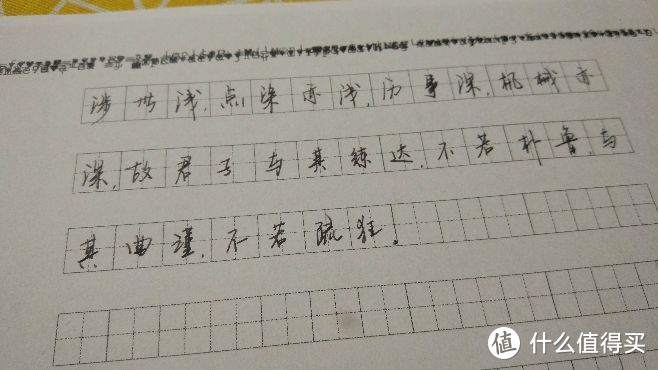 涉世浅,点染亦浅,历事深,机械亦
深,故君子与其练达,不若朴鲁,与
其曲谨,不若疏狂。
值 什么值得买